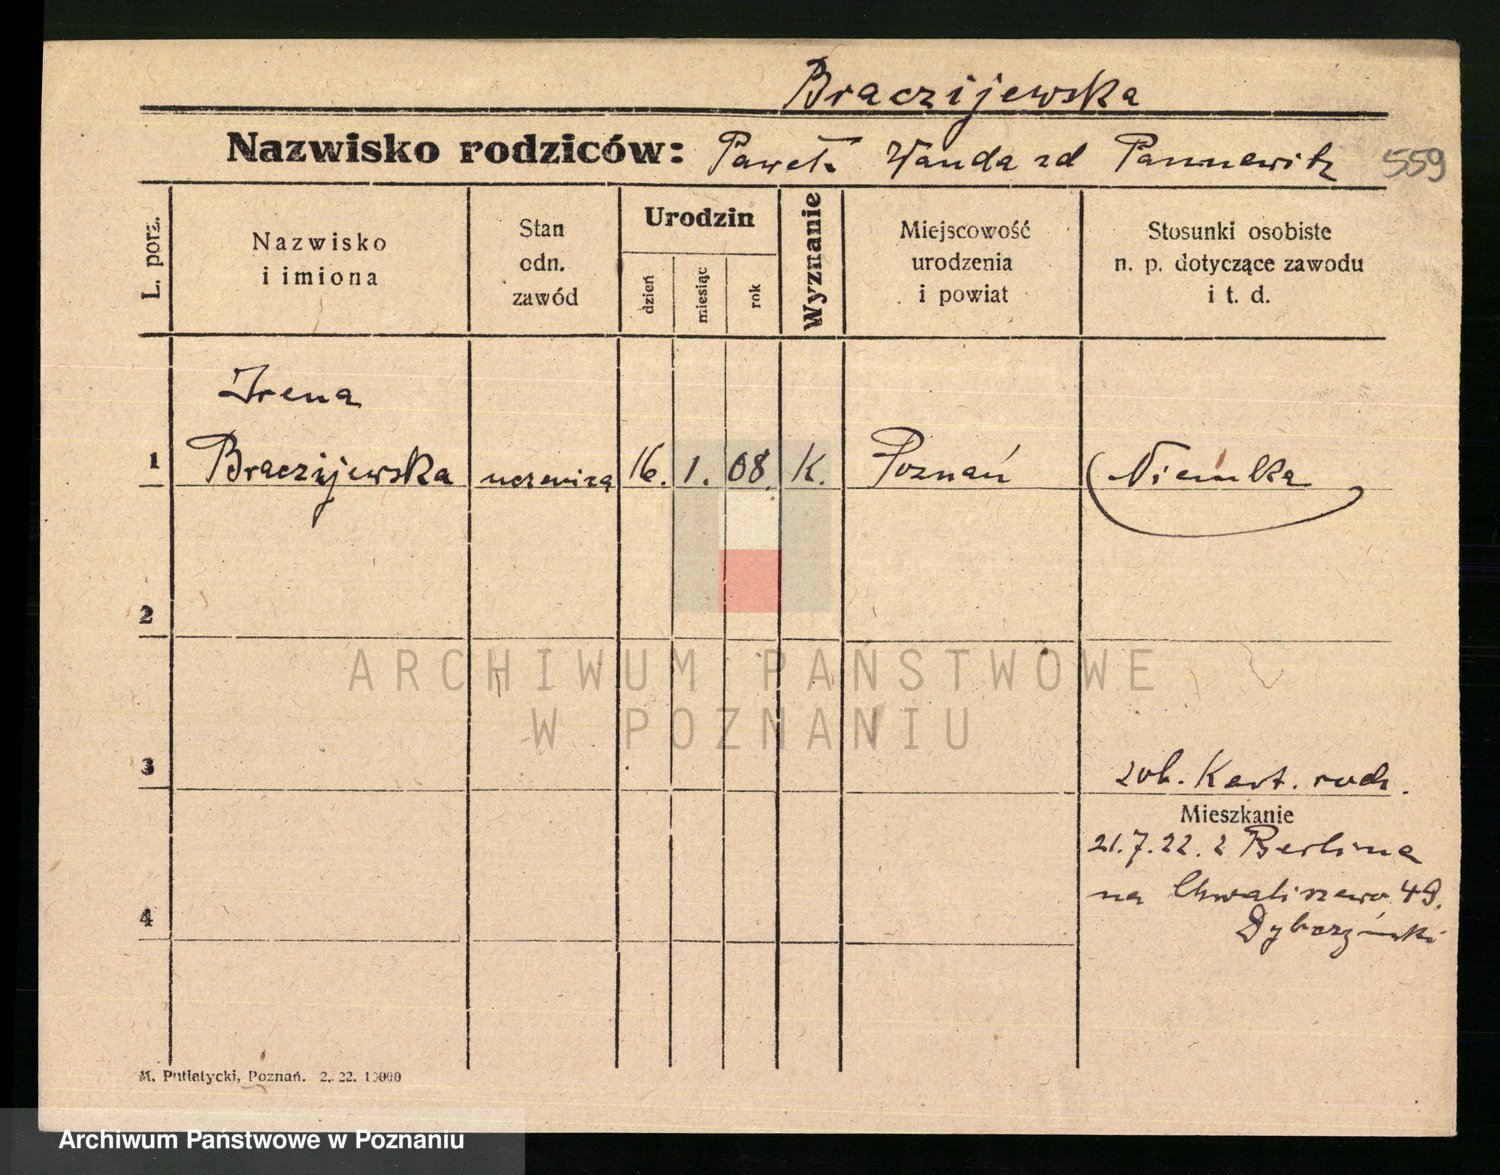 Braczijewska
Nazwisko rodziców: Paweł Wanda zd Pannewitz 559
L. porz.
Nazwisko
i imiona
Stan
odn.
zawód
Urodzin
dzień
miesiąc
rok
Wyznanie
Miejscowość
urodzenia
i powiat
Stosunki osobiste
n. p. dotyczące zawodu
i t. d.
Irena
1 Braczijewska uczenicą 16. 1. 08. K. Poznań Niemka
2
ARCHIWUM PAŃSTWOWE
W POZNANIU
3
zob. Kart. rodz.
Mieszkanie
21.7.22. z Berlina
na Chwaliszewo 49.
4
M. Putiatycki, Poznań. 2. 22. 10000
Archiwum Państwowe w Poznaniu